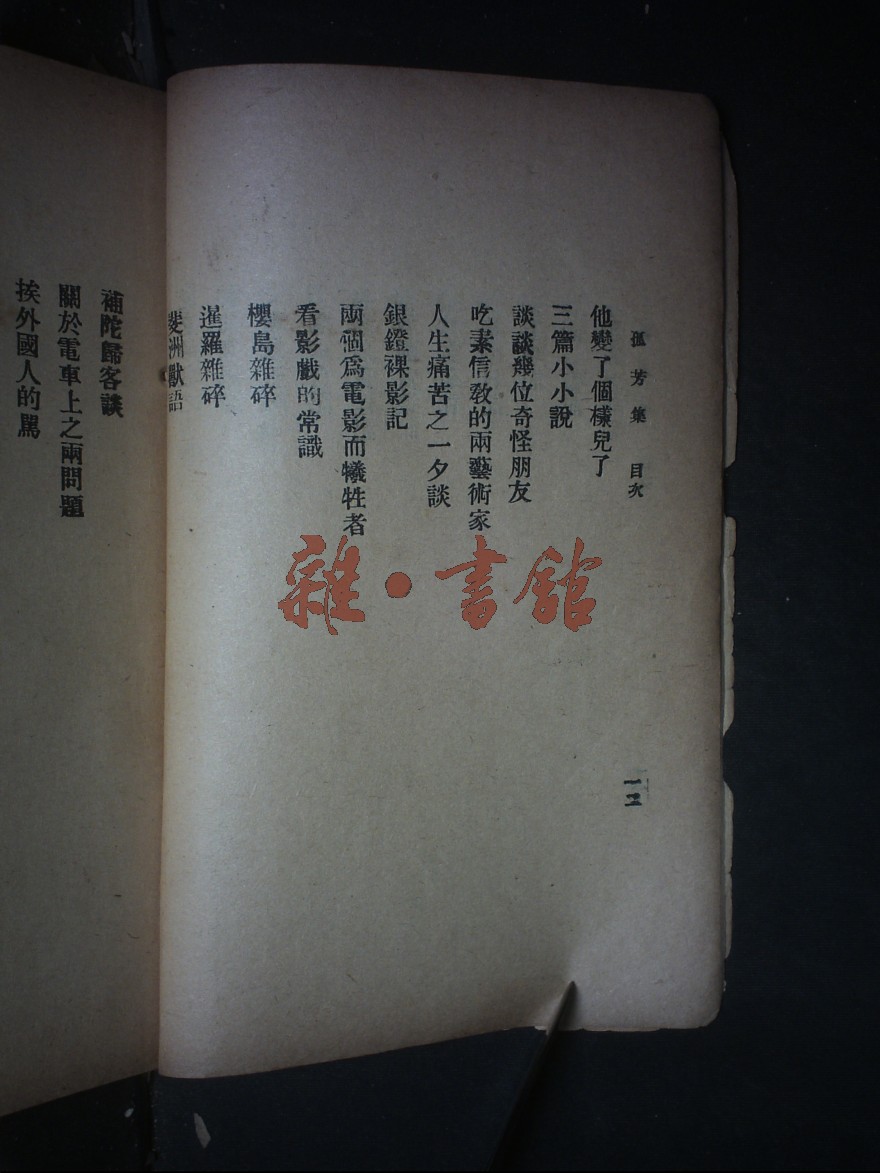 孤芳集　目次
一二
他變了個樣兒了
三篇小小說
談談幾位奇怪朋友
吃素信敎的兩藝術家
人生痛苦之一夕談
銀鐙裸影記
兩個爲電影而犧牲者
看影戲的常識
櫻島雜碎
暹羅雜碎
斐洲獸語
補陀歸客談
關於電車上之兩問題
挨外國人的罵
雜·書館